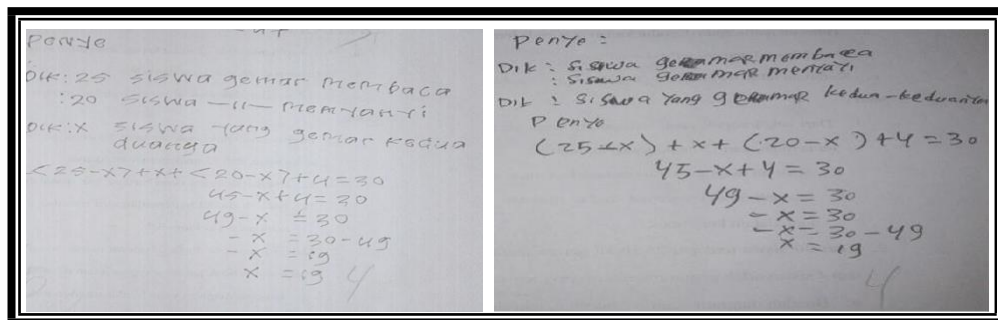 Penye
Dik : 25 siswa gemar membaca
: 20 siswa —11— menyanyi
Dik : x siswa yang gemar kedua
duanya
(25-x)+x+(20-x)+4=30
45-x+4=30
49-x = 30
-x = 30-49
-x = 19
x = 19
4
Penye :
Dik : siswa gemar membaca
: siswa gemar menyanyi
Dik : siswa yang gemar kedua-keduanya
Penye
(25-x) + x + (20-x) + 4 = 30
45-x+4 = 30
49-x = 30
-x = 30
-x = 30-49
x = 19
4